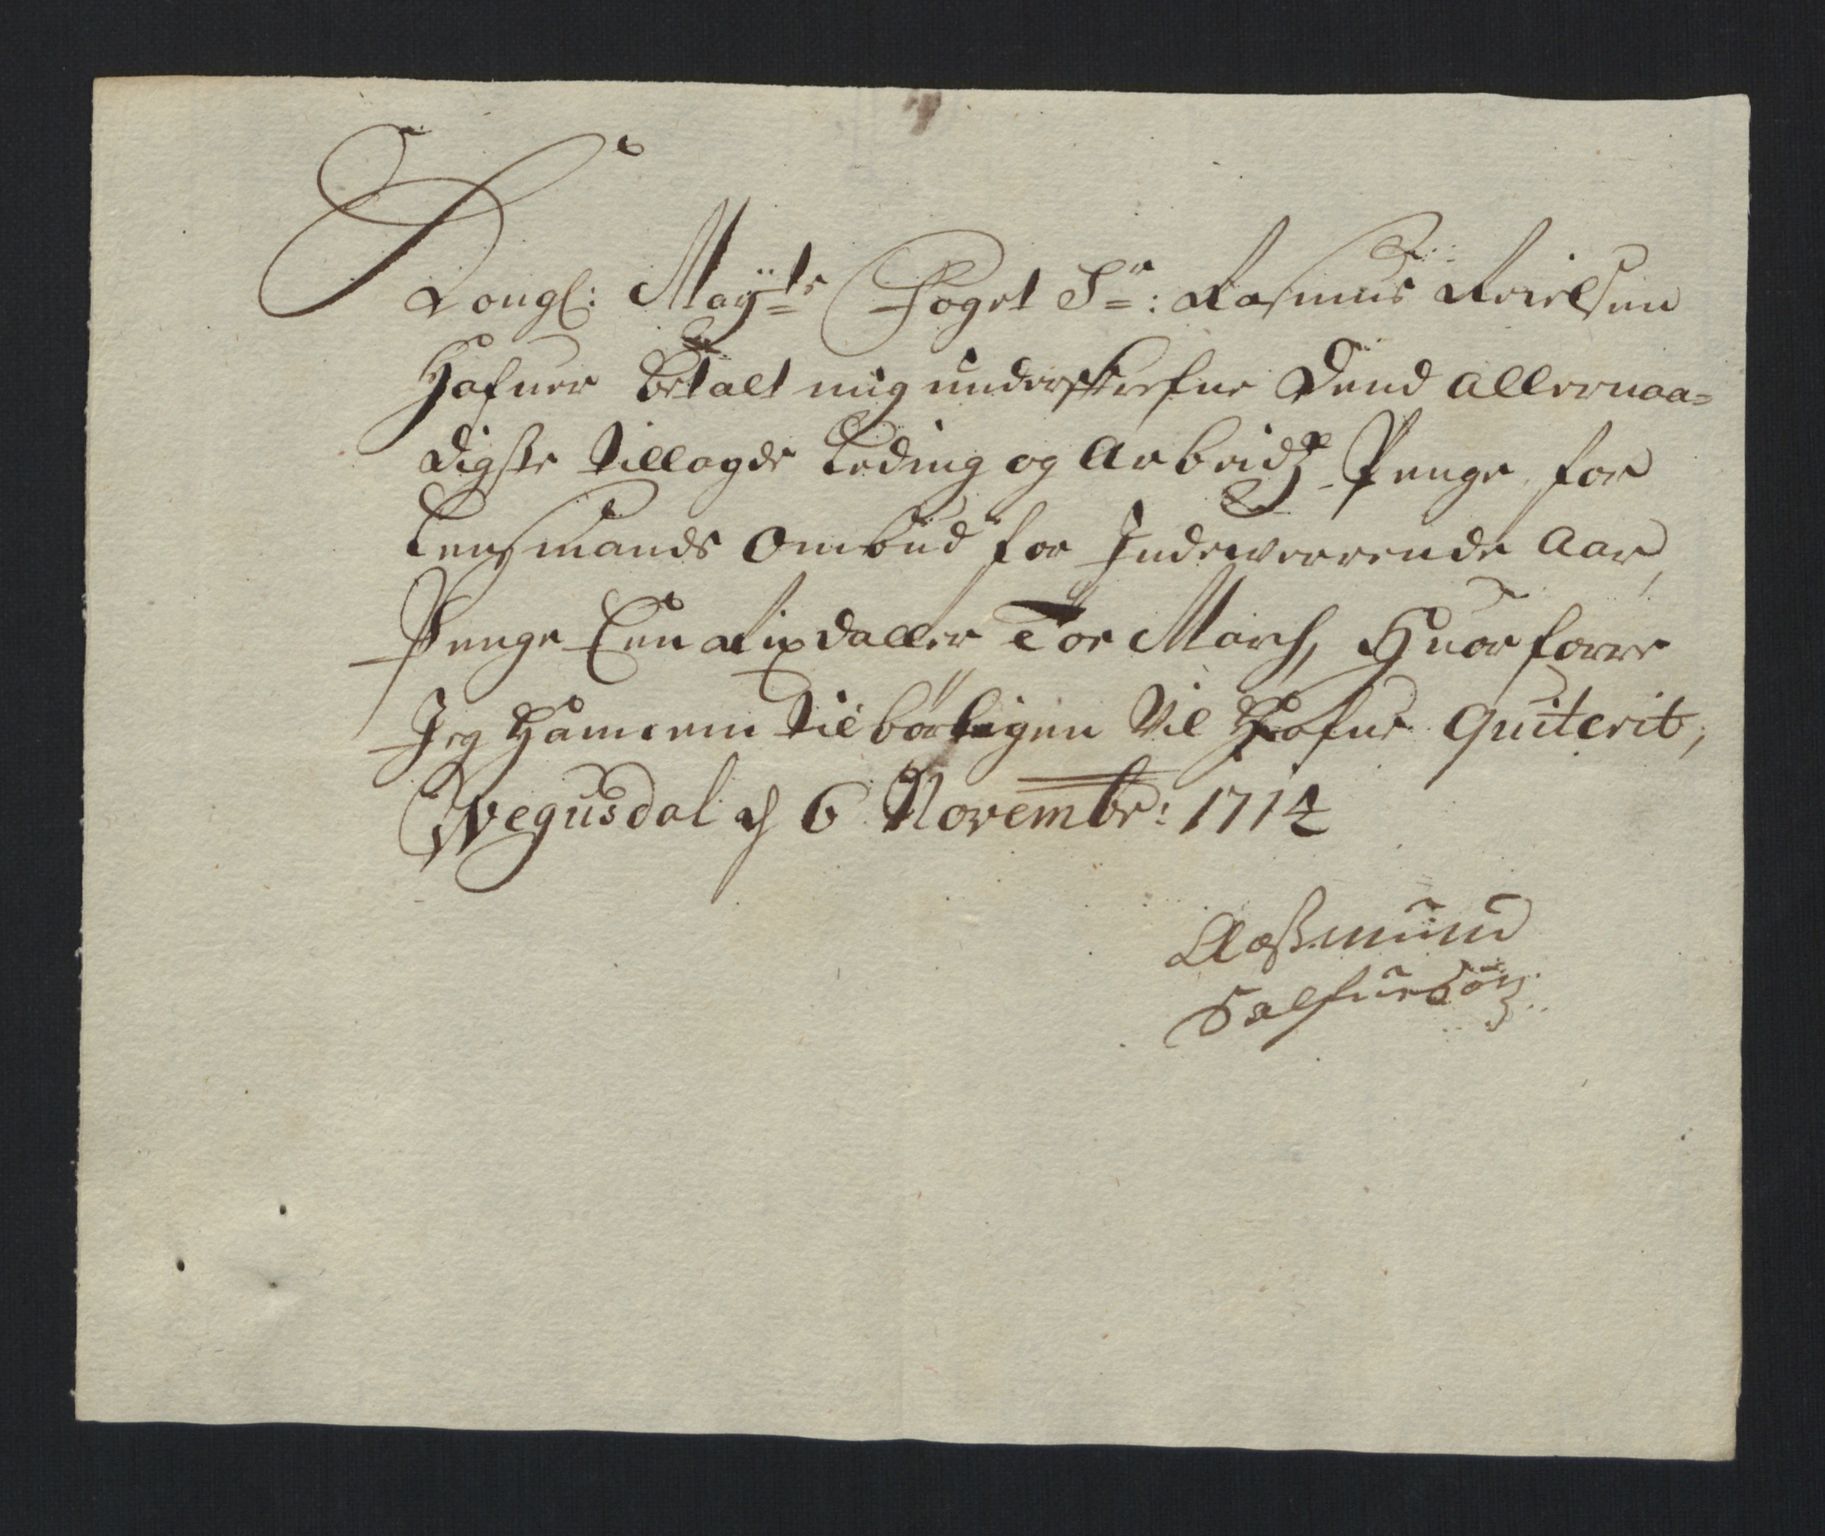 Kongl: Mayts Foget Sr: Rasmus Reielsen
Hafuer betalt mig underskrefne Dend allernaa=
digste tillagde Leding og Arbeidz Penge for
Lensmands Ombud for Indewerrende Aar,
Penge Een Rixdaller Toe March, Huorforre
Jeg Ham em tilbörligen Vil Hafue Quiterit,
Wegusdal d 6 Novembr: 1714
Aaßmund
Salfuesön